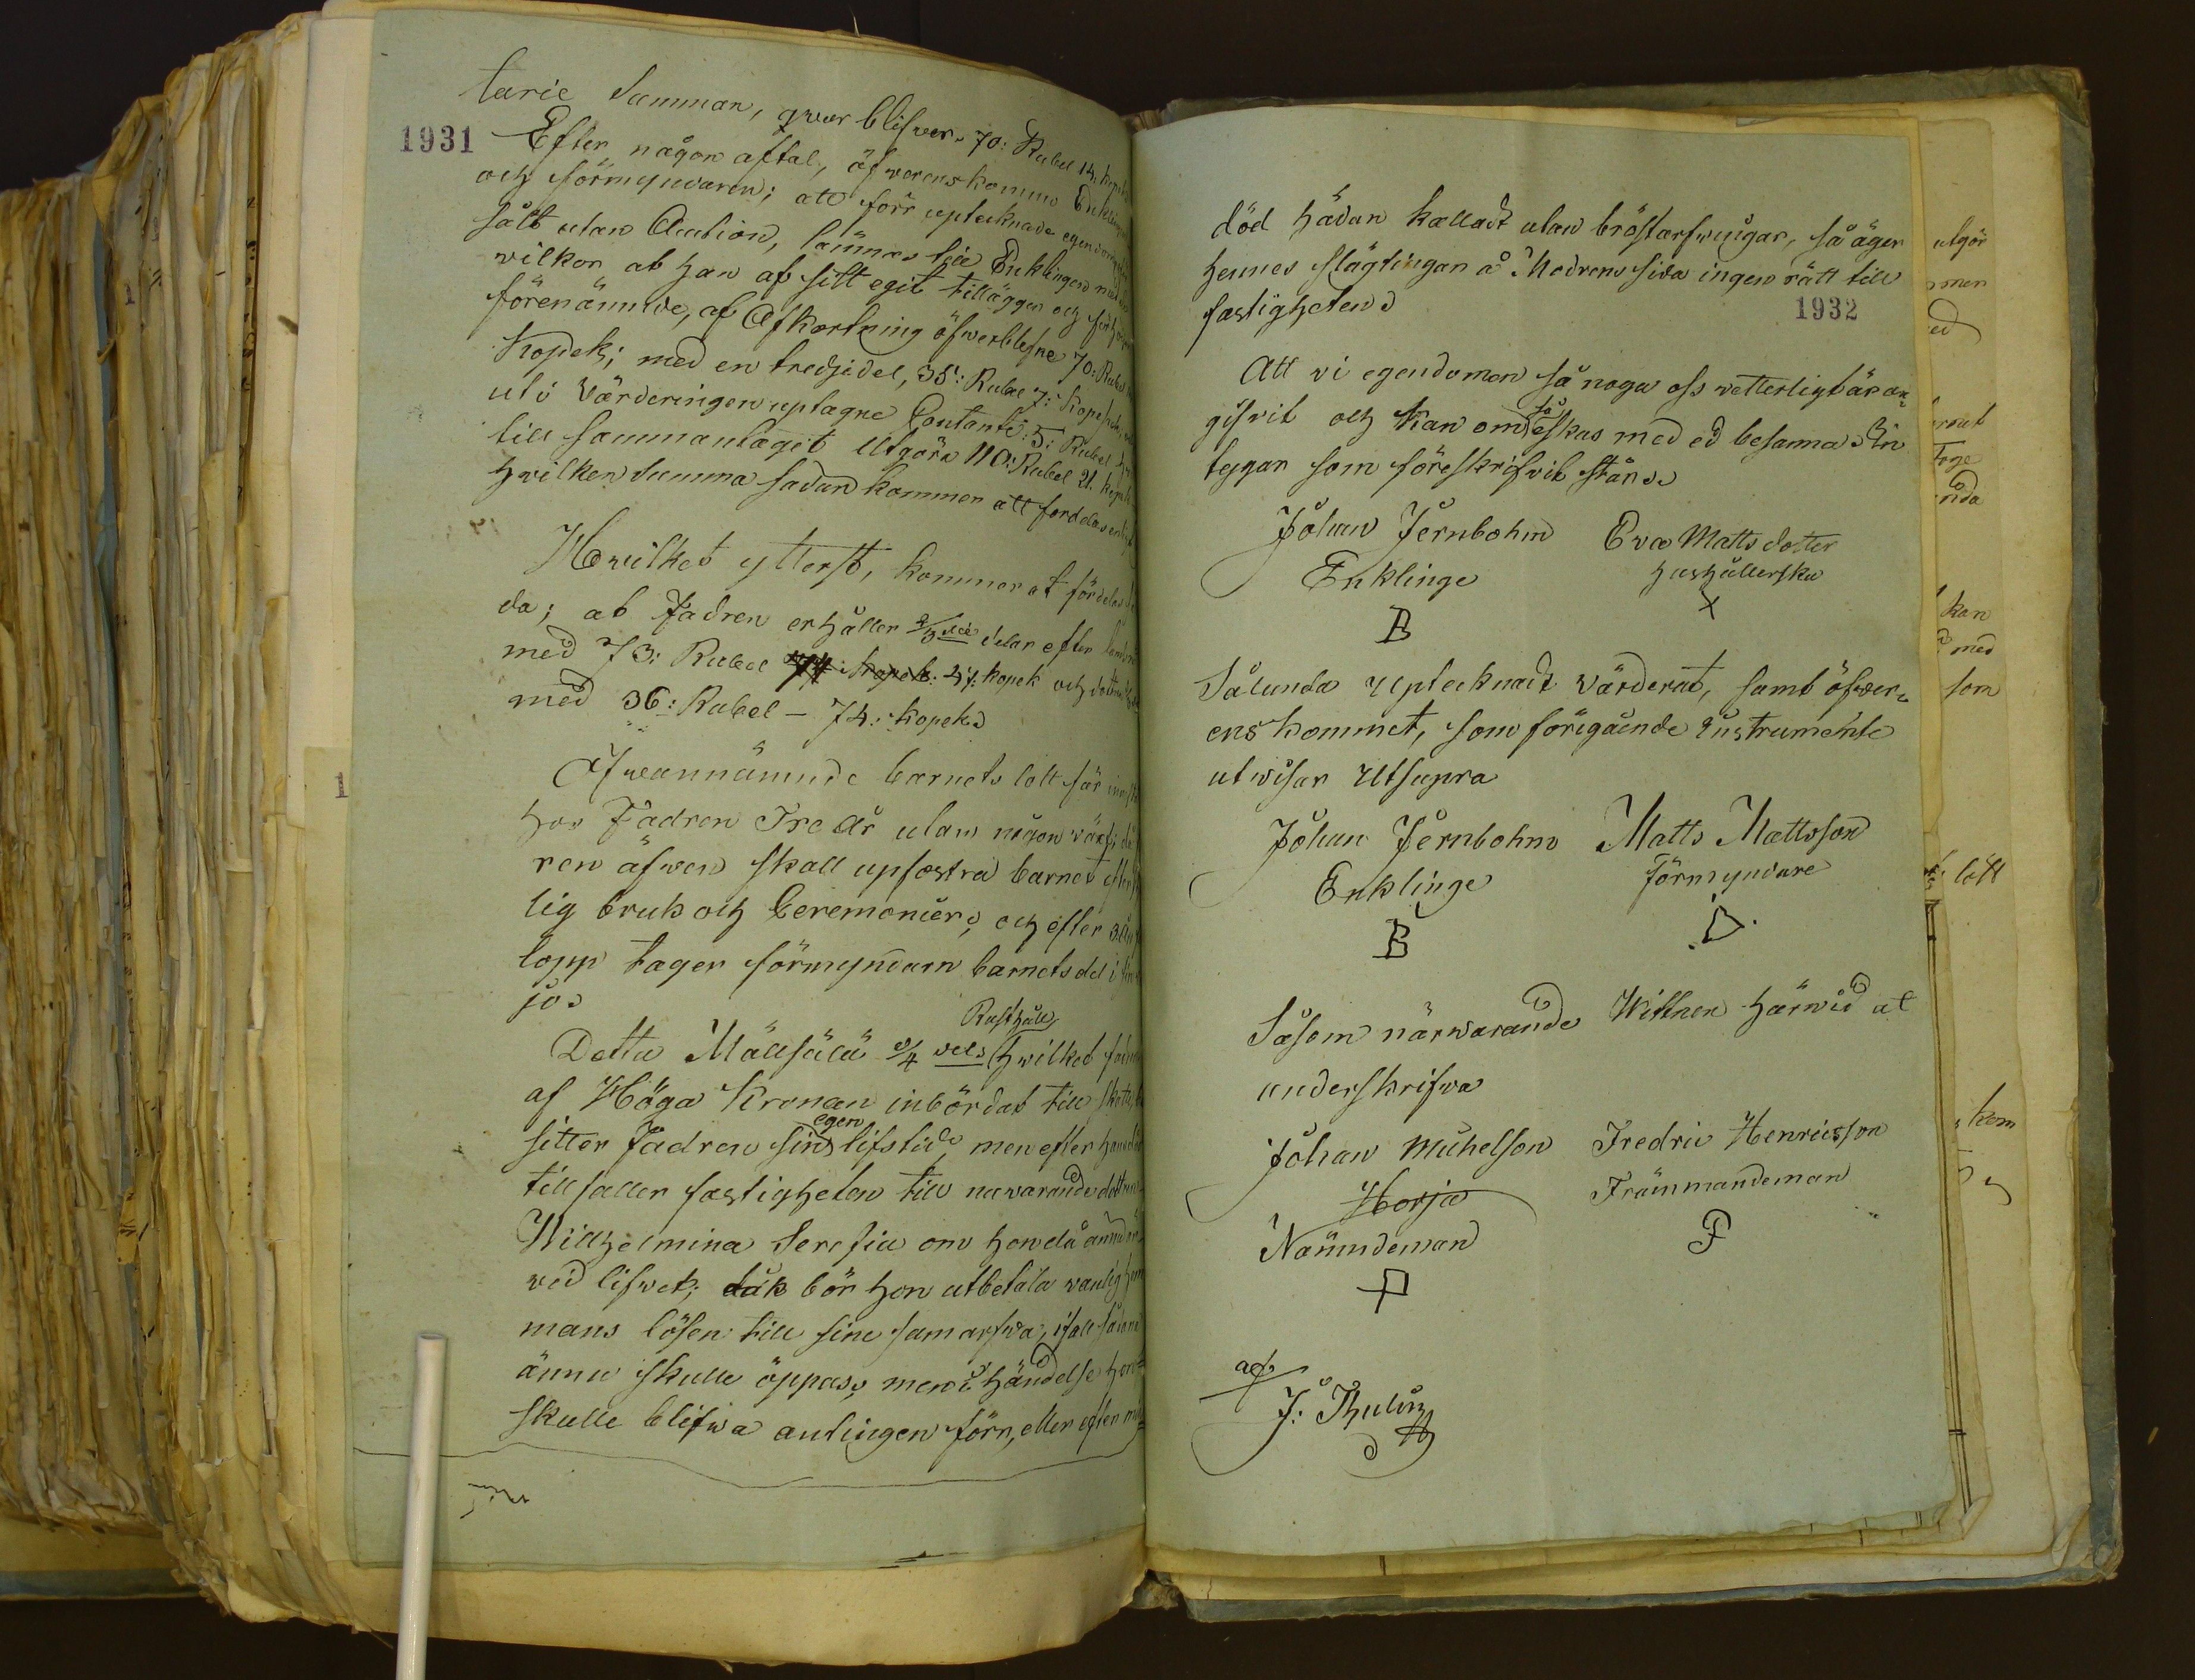 tarie Summan, qvar blifver. 70: Rubel 14. kopek
1931
Efter någon aftal, äfverenskommo Enklingen
och förmyndaren; att förr uptecknade egendom
sålt utan Auction, lämnas till Enklingen med
vilkor at han af sitt egit tillägger och
förenämnde, af Afkortning öfwerblefne 70: Rubel
Kopek; med en tredjedel, 35: Rubel 7: Kopek,
uti Värderingen uptagne Contante: 5: Rubel,
till sammanlagit Utgöra 110: Rubel 21. kopek
hvilken Summa sedan kommer att fördelas
Hwilket ytterst, kommer at fördelas
da; at Fadren erhåller 2/3 delar efter
med 73: Rubel 47: kopek och dottren
med 36: Rubel – 74: kopek
Ofwannämnde barnets lott får
hos Fadren Tre År utan någon
ren äfwen skall upfostra barnet efter
lig bruk och Ceremonier, och efter 3
lopp tager förmyndarn barnets del i
jo.
Rusthåll,
Detta Mällsälä 3/4 dels hwilket
af Höga Kronan inbördat till
egen
sitter Fadren sin lifstid, men efter
tillfaller fastigheten till nuwarande dottren
Willhelmina Serafia om hon då ännu är
wid lifvet; dåk bör hon utbetala vanlig
mans lösen till sine samarfwa, ifall sådane
ännu skulle öppas, men i händelse hon
skulle blifwa antingen förr, eller efter
död hädan kallad utan bröstarfwingar, så äger
hennes slägtingar å Modrens sida ingen rätt till
fastigheten
1932
Att vi egendomen så noga oss vetterligt är an-
så
gifvit och kan om äskas med ed besanna
tygar som föreskrifvit står
Johan Jernbohm
Eva Mattsdotter
Enklinge
hushållerska
B
X
Sålunda Uptecknadt värderat, samt öfwer-
enskommet, som föregående Instrumente
utwisar Utsupra
Johan Jernbohm
Matts Mattsson
Enklinge
Förmyndare
B
Såsom närwarande Wittnen härwid at
underskrifwa
Johan Michelson
Fredric Henricsson
Horja
Främmandeman
Nämndeman
F
af
J: Thulin
utgör
men
ed
kan
med
som
lött
kom